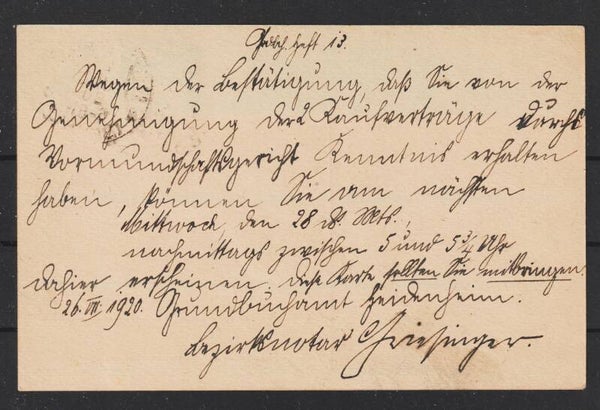 Gesch. Heft 13.
Wegen der Bestätigung, daß Sie von der
Genehmigung der 2 Kaufverträge durchs
Vormundschaftsgericht Kenntnis erhalten
haben, können Sie am nächsten
Mittwoch, den 28. ds. Mts.,
nachmittags zwischen 5 und 5 3/4 Uhr
dahier erscheinen. Diese Karte sollten Sie mitbringen.
26. VII. 1920. Grundbuchamt Heidenheim.
Bezirksnotar Griesinger.